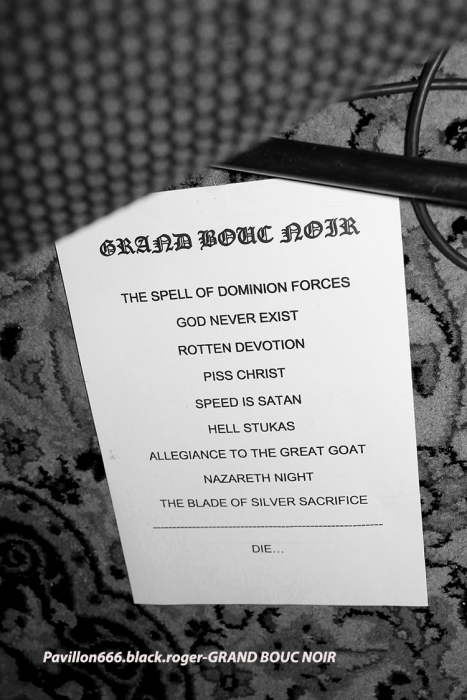 GRAND BOUC NOIR
THE SPELL OF DOMINION FORCES
GOD NEVER EXIST
ROTTEN DEVOTION
PISS CHRIST
SPEED IS SATAN
HELL STUKAS
ALLEGIANCE TO THE GREAT GOAT
NAZARETH NIGHT
THE BLADE OF SILVER SACRIFICE
--------------------------------------------------------------
DIE...
Pavillon666.black.roger-GRAND BOUC NOIR